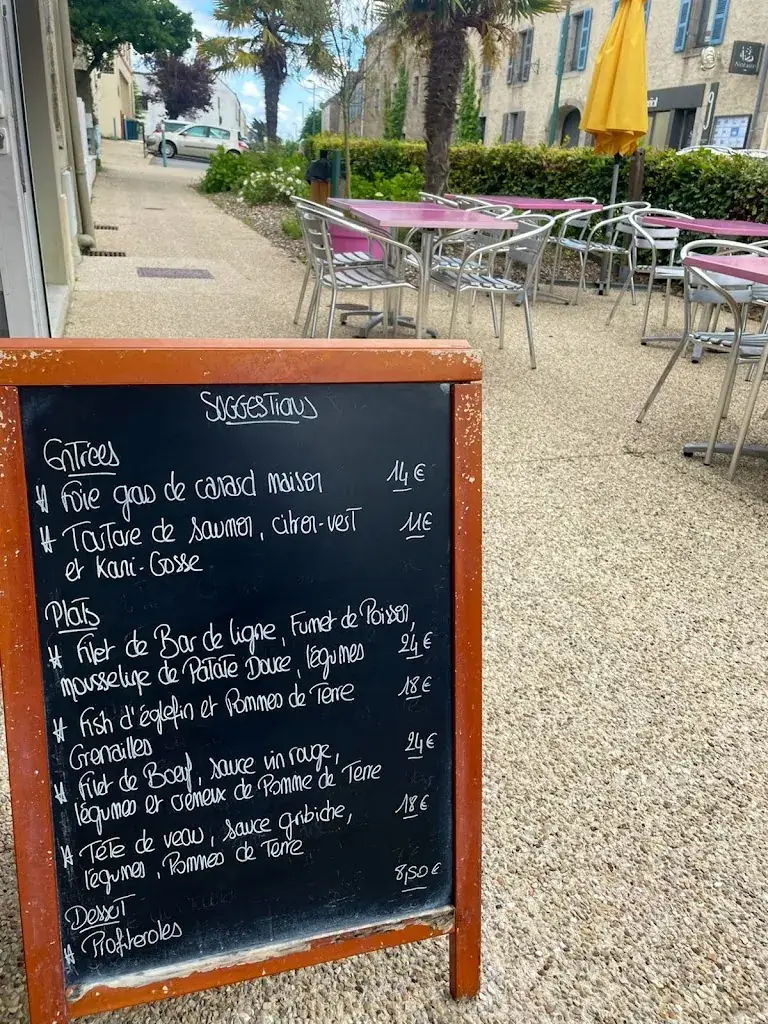 SUGGESTIONS
Entrées
Foie gras de canard maison 14€
Tartare de saumon, citron-vert 11€
et Kani-Gosse
Plats
Filet de Bar de ligne, Fumet de Poisson,
mousseline de Patate Douce, légumes 24€
Fish d'églefin et Pommes de Terre 18€
Grenailles
Filet de Boeuf, sauce vin rouge, 24€
légumes et crémeux de Pomme de Terre
Tête de veau, sauce gribiche, 18€
légumes, Pommes de Terre
Dessert 8,50€
Profiteroles